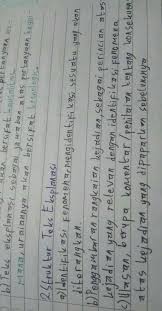 b) Teks eksplanasi sebagai jawaban atas pertanyaan
mana, urajannya akan bersifat
2. Struktur Teks Eksplanasi
a) Identifikasi Fenomena: mengidentifikasi sesuatu yang akan
diterangkan.
b) Penggambaran rangkaian kejadian, sebagai perincian atas
kejadian yang relevan dengan identifikasi fenomena
c) Ulasan, berupa komentar penilaian tentang konsekuensi
atas kejadian yang dipaparkan sebelumnya